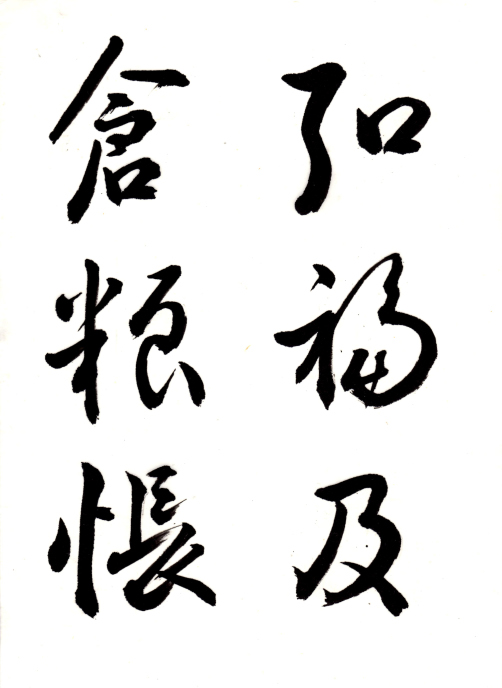 弘福及
倉粮悵